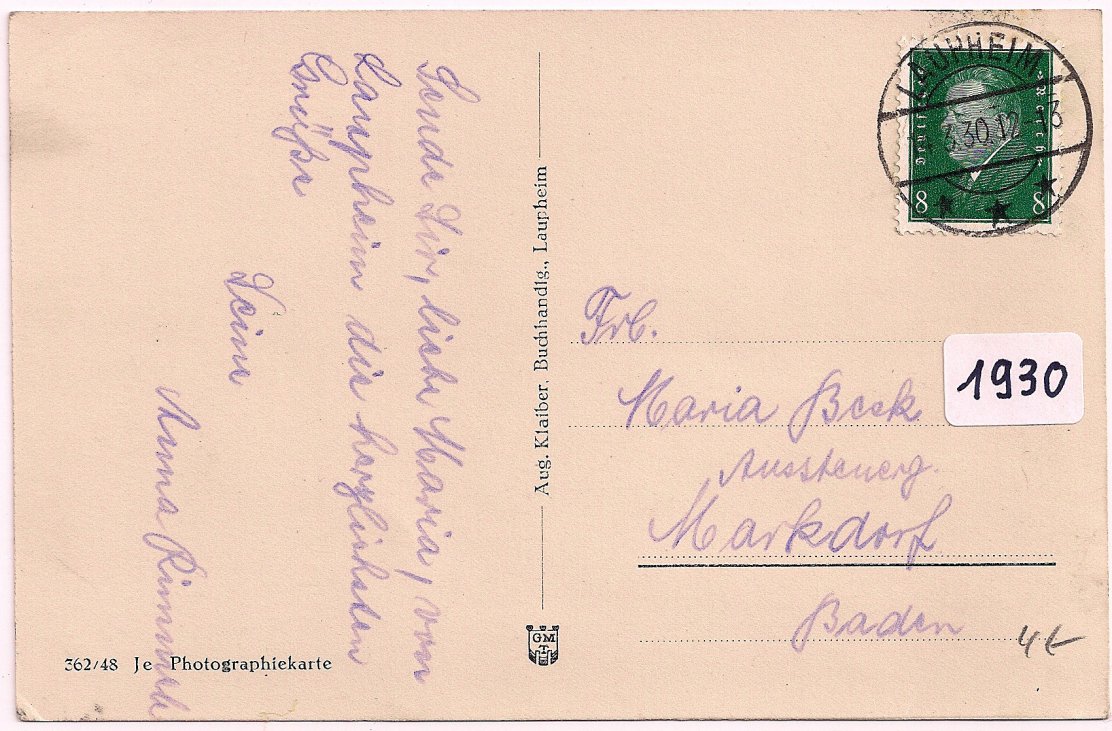 Sende Dir, liebe Maria, vom
Laupheim die herzlichsten
Grüße
Deine
Anna
362/48 Je Photographiekarte
Aug. Klaiber, Buchhandlg., Laupheim
GM
F
LAUPHEIM
3.30.12-13
Deutsches Reich
8 8
Frl.
1930
Maria Beck
Aussteuerg.
Markdorf
Baden
4€